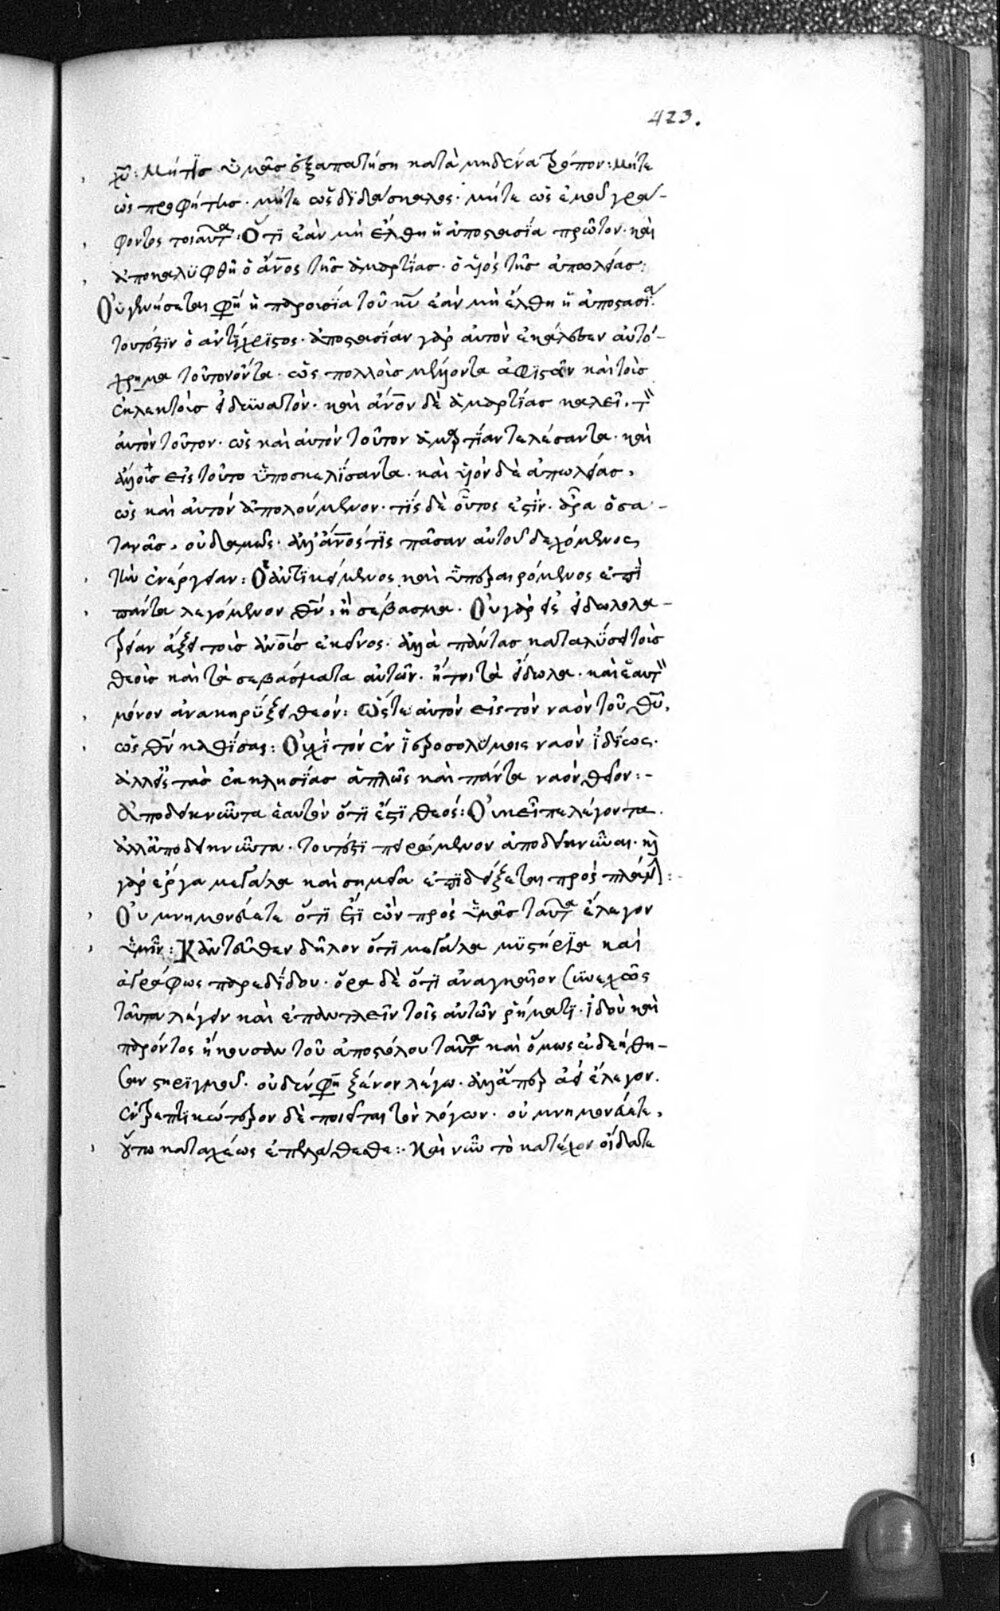 423.
χῦ: Μήτϊς ὑμᾶς ἐξαπατήση κατὰ μηδένα τρόπον: μήτε
ὡς προφήτης· μήτε ὡς διδάσκαλος· μήτε ὡς ἐμοῦ γρά-
φοντος τοιαῦτα: Ὅτι ἐὰν μὴ ἔλθη ἡ ἀποστασία πρῶτον· καὶ
ἀποκαλυφθῆ ὁ ἄνος τῆς ἁμαρτίας· ὁ ϋἱός τῆς ἀπωλείας:
Οὐ γενήσεται φη ἡ παρουσία τοῦ κυ ἐὰν μὴ ἔλθη ἡ ἀποστασία
τουτέστιν ὁ ἀντίχριστος· ἀποστασίαν γὰρ αὐτὸν ἐκάλεσεν αὐτό-
χρημα τοῦτον ὄντα· ὡς πολλοὺς μέλλοντα ἀφιστᾶν καὶ τοὺς
ἐκλεκτοὺς εἰ δυνατὸν· καὶ ἄνον δὲ ἁμαρτίας καλεῖ·
αὐτὸν τοῦτον· ὡς καὶ αὐτὸν τοῦτον ἁμαρτίαν τελέσαντα· καὶ
ἄλλους εἰς τοῦτο ὑποσκελίσαντα· καὶ ὑὸν δὲ ἀπωλείας,
ὡς καὶ αὐτὸν ἀπολούμενον· τίς δὲ οὗτος ἐστὶν· ἆρα ὁ σα-
τανᾶς, οὐδαμῶς· ἀλλ' ἄνος τίς πᾶσαν αὐτοῦ δεχόμενος
τὴν ἐνέργειαν: Ὁ ἀντικείμενος καὶ ὑπεραιρόμενος ἐπὶ
πάντα λεγόμενον θν, ἢ σέβασμα· Οὐ γὰρ εἰς εἰδωλολα-
τρείαν ἄξει τοὺς ἀνους ἐκεῖνος· ἀλλὰ πάντας καταλύσει τοὺς
θεοὺς καὶ τὰ σεβάσματα αὐτῶν· ἤτοι τὰ εἴδωλα· καὶ ἑαυτ
μόνον ἀνακηρύξει θεόν: Ὥστε αὐτὸν εἰς τὸν ναὸν τοῦ θυ,
ὡς θν καθίσαι: Οὐχὶ τὸν ἐν ἱεροσολύμοις ναὸν ἰδίως·
ἀλλ' εἰς τὰς ἐκκλησίας ἁπλῶς καὶ πάντα ναὸν θεῖον:-
Ἀποδεικνῦντα ἑαυτὸν ὅτι ἐστὶ θεός: Οὐκ εἶπε λέγοντα·
ἀλλ' ἀποδεικνῦντα· τουτέστι πειρώμενον ἀποδεικνῦναι· καὶ
γὰρ ἔργα μεγάλα καὶ σημεῖα ἐπιδείξεται πρὸς πλάνην:-
Οὐ μνημονεύετε ὅτι ἔτι ὢν πρὸς ὑμᾶς ταῦτα ἔλεγον
ὑμῖν: Κἀντεῦθεν δῆλον ὅτι μεγάλα μυστήρια καὶ
ἀγράφως παρεδίδου· ὅρα δὲ ὅτι ἀναγκαῖον συνεχῶς
ταῦτα λέγειν καὶ ἐπαντλεῖν τοῖς αὐτῶν ῥήμασι· ἰδοὺ καὶ
παρόντος ἤκουσαν τοῦ ἀποστόλου ταῦτα καὶ ὅμως ἐδεήθη-
σαν στηριγμοῦ· οὐδέν φη ξένον λέγω· ἀλλ' ἅπερ ἀεὶ ἔλεγον·
ἐντρεπτικώτερον δὲ ποιεῖται τὸν λόγον· οὐ μνημονεύετε,
οὕτω καταχέως ἐπελάθεσθε:· Καὶ νῦν τὸ κατέχον οἴδατε